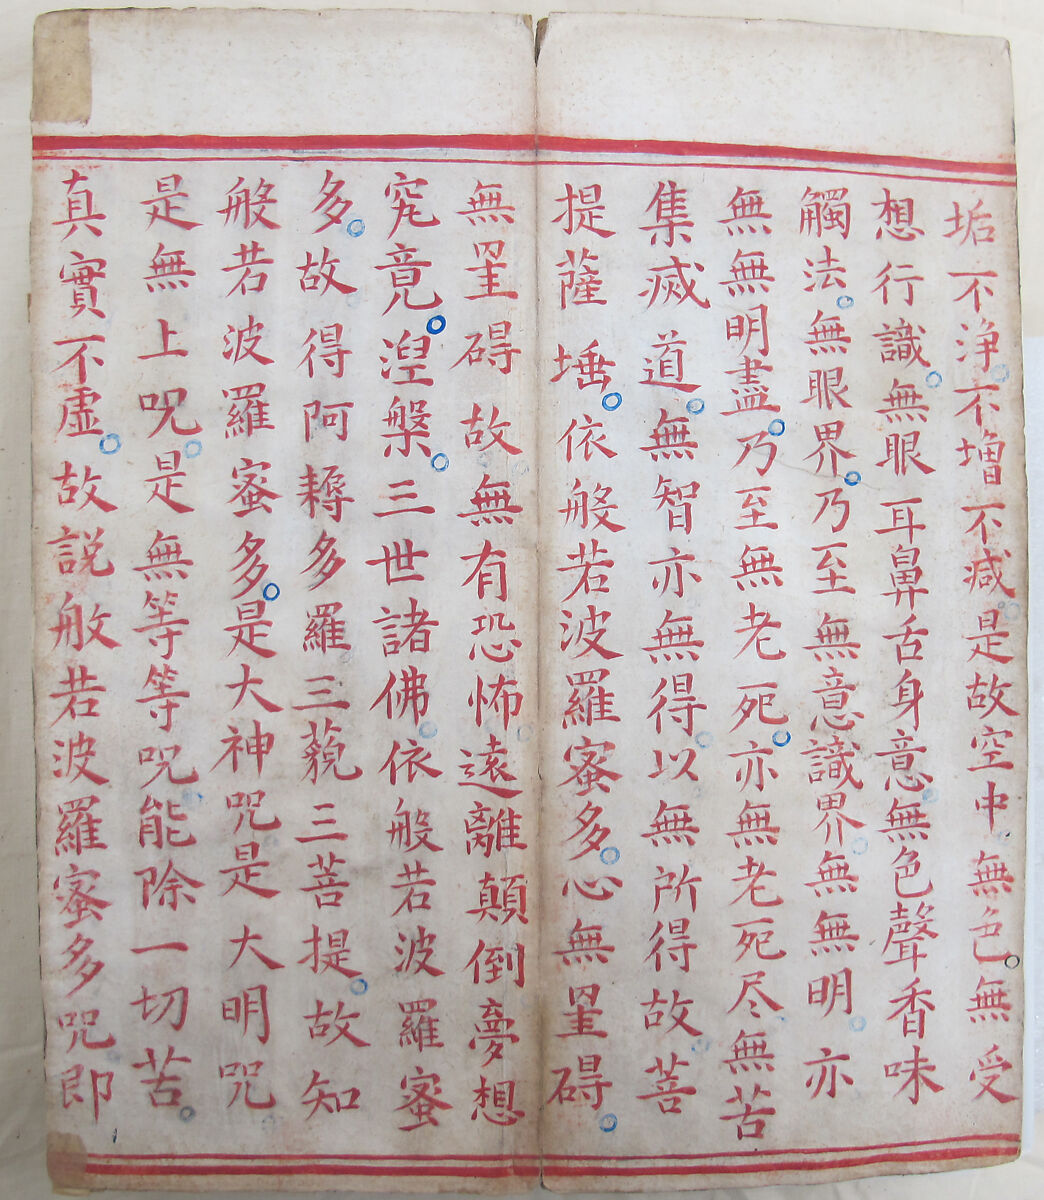 垢不浄不增不减是故空中無色無受
想行識無眼耳鼻舌身意無色聲香味
觸法無眼界乃至無意識界無無明亦
無無明盡乃至無老死亦無老死尽無苦
集滅道無智亦無得以無所得故菩
提薩埵依般若波羅蜜多心無罣碍
無罣碍故無有恐怖遠離顛倒夢想
究竟湼槃三世諸佛依般若波羅蜜
多故得阿耨多羅三藐三菩提故知
般若波羅蜜多是大神咒是大明咒
是無上咒是無等等咒能除一切苦
真實不虛故説般若波羅蜜多咒即